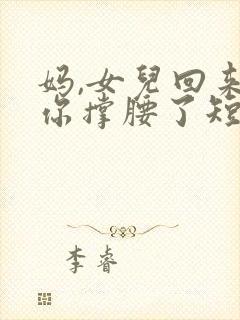 妈,女兒回来
你撑腰了短
李睿